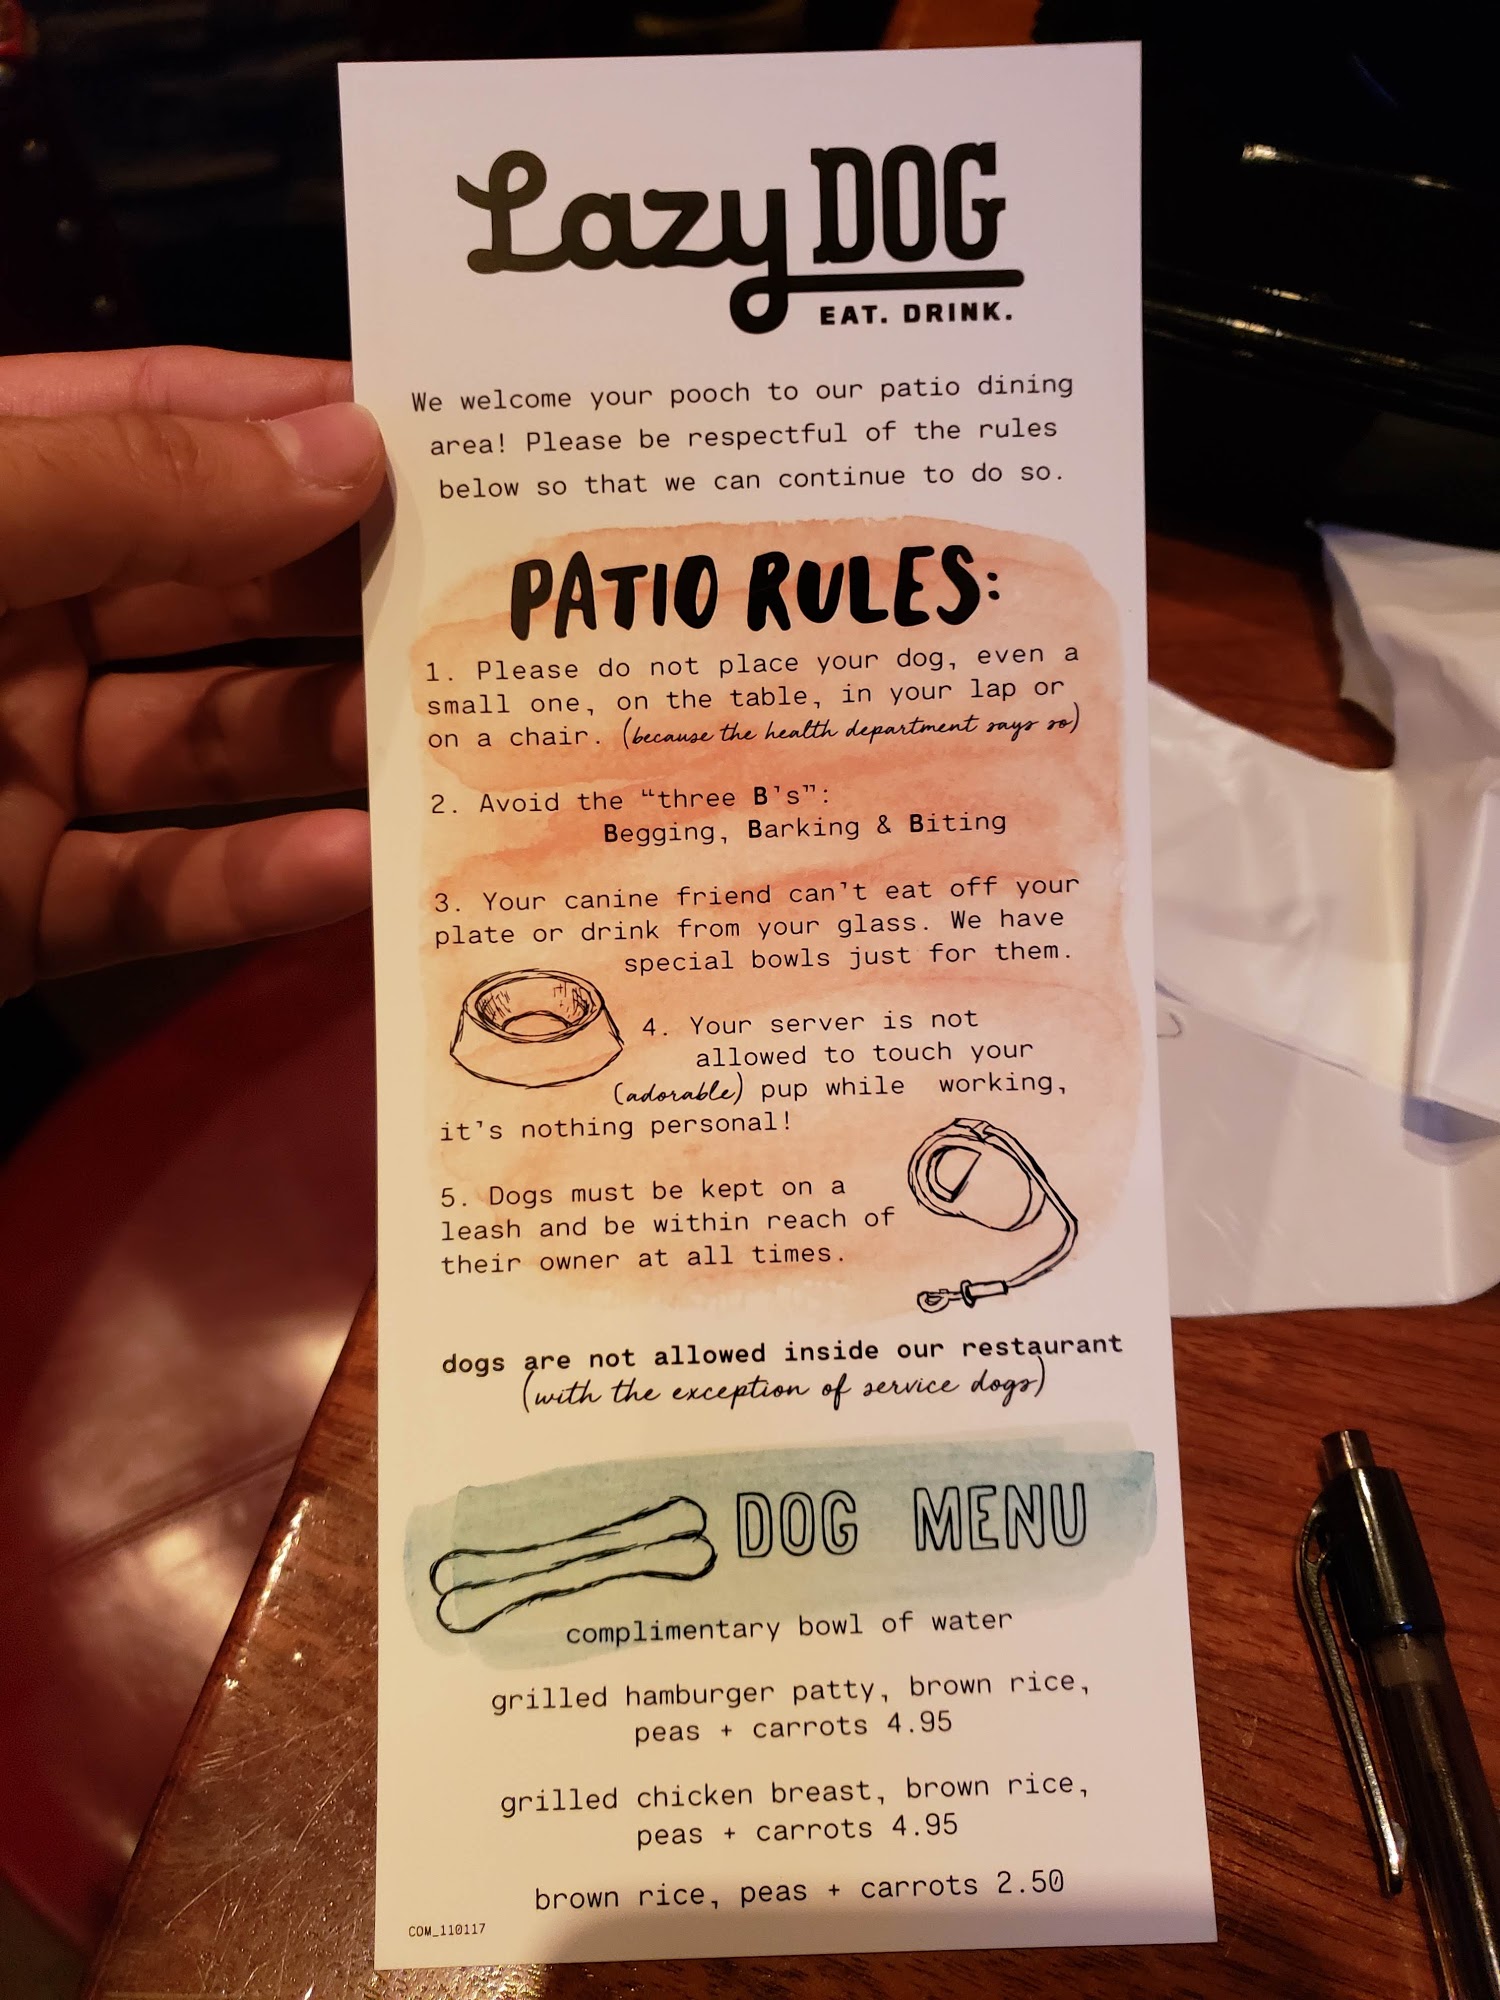 Lazy DOG
EAT. DRINK.
We welcome your pooch to our patio dining
area! Please be respectful of the rules
below so that we can continue to do so.
PATIO RULES:
1. Please do not place your dog, even a
small one, on the table, in your lap or
on a chair. (because the health department says so)
2. Avoid the “three B's”:
Begging, Barking & Biting
3. Your canine friend can't eat off your
plate or drink from your glass. We have
special bowls just for them.
4. Your server is not
allowed to touch your
(adorable) pup while working,
it's nothing personal!
5. Dogs must be kept on a
leash and be within reach of
their owner at all times.
dogs are not allowed inside our restaurant
(with the exception of service dogs)
DOG MENU
complimentary bowl of water
grilled hamburger patty, brown rice,
peas + carrots 4.95
grilled chicken breast, brown rice,
peas + carrots 4.95
brown rice, peas + carrots 2.50
COM_110117